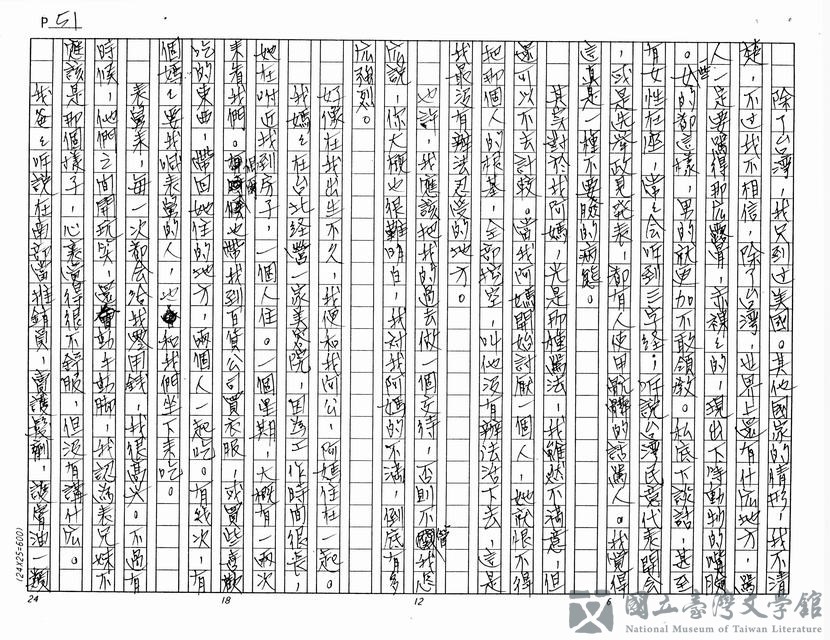 P 51
除了台灣,我只到过美國。其他國家的情形,我不清
楚,不过我不相信,除了台灣,世界上還有什広地方,罵
人一定要罵得那広露骨,赤裸裸的,現出下等動物的嘴臉
。女的都這樣,男的就更加不敢領教。私底下談話,甚至
有女性在座,常常会听到三字経;听說台湾民意代表開会
,或是选举政見発表,都有人使用骯髒的話罵人。我覺得
這真是一種不要臉的病態。
其实對於我阿媽,光是那種罵法,我雖然不滿意,但
還可以不去計較。當我阿媽開始討厭一個人,她就恨不得
把那個人的根基,全部挖空,叫他沒有辦法活下去,這是
我最沒有辦法忍受的地方。
也許,我應該把我的過去做一個交待,否則不管我怎
広說,你大概也很難明白,我对我阿媽的不滿,倒底有多
広強烈。
好像在我出生不久,我便和我阿公,阿媽住在一起。
我媽媽在台北経營一家美容院,因為工作時間很長,
她在附近找到房子,一個人住。一個星期,大概有一兩次
來看我們。有時候也帶我到百貨公司買衣服,或買些喜歡
吃的東西,帶回她住的地方,兩個人一起吃。有幾次,有
個媽媽要我喊表舅的人,也和我們坐下來吃。
表舅來,每一次都会給我零用錢,我很高兴。不過有
時候,他們之間開玩笑,還會動手動脚,我認為表兄妹不
應該是那個樣子,心裏覺得很不舒服,但沒有講什広。
我爸爸听說在南部當推銷員,賣護髮劑,護膚油一類
24
18
12
6
(24X25=600)
國立臺灣文學館
National Museum of Taiwan Literature